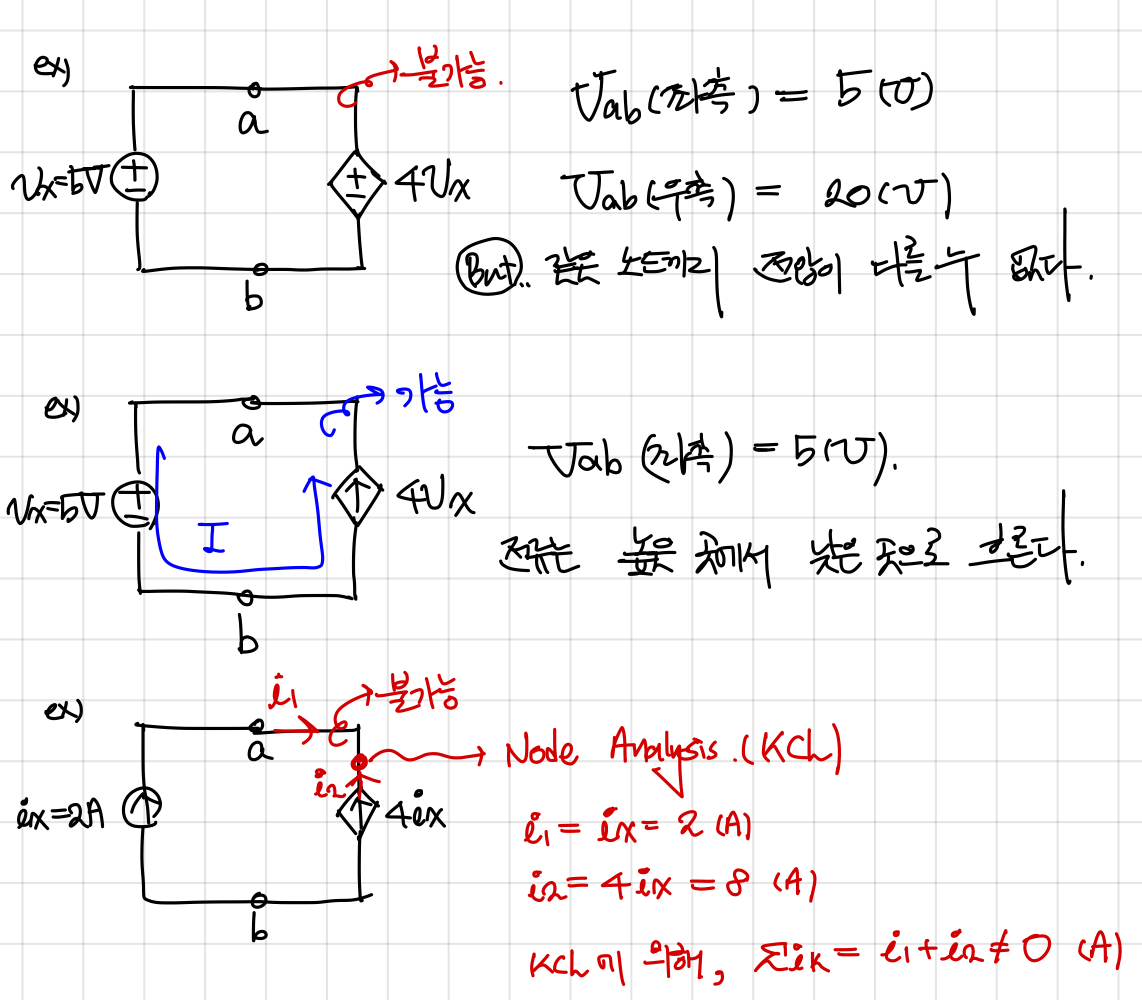 ex)
불가능.
a
Vx=5V
4Vx
b
Vab(좌측) = 5(V)
Vab(우측) = 20(V)
But.. 같은 노드끼리 전압이 다를 수 없다.
ex)
가능
a
Vx=5V
I
4Vx
b
Vab (좌측) = 5(V).
전류는 높은 곳에서 낮은 곳으로 흐른다.
ex)
i1
불가능
a
i2
ix=2A
4ix
b
Node Analysis.(KCL)
i1 = ix = 2 (A)
i2 = 4ix = 8 (A)
KCL에 의해, Σik = i1+i2 ≠ 0 (A)